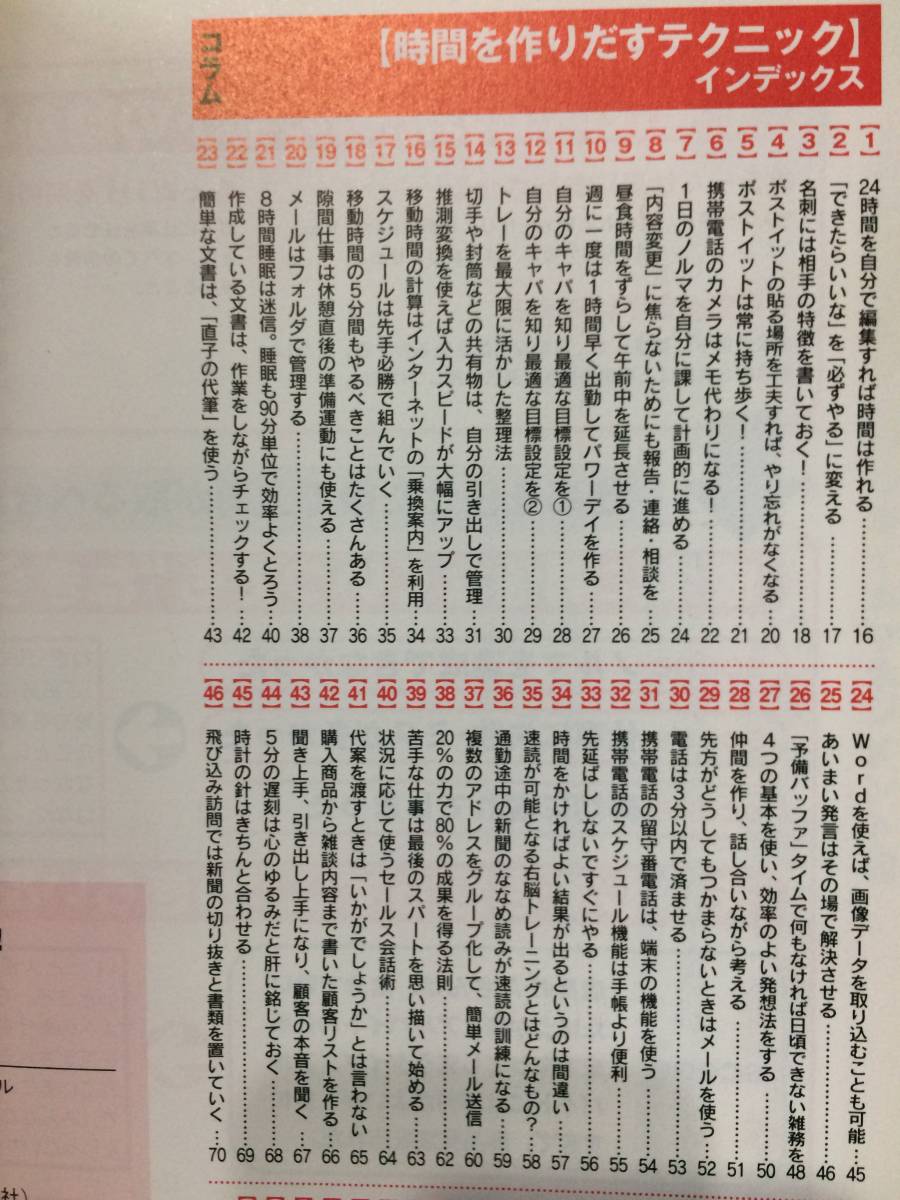 コラム
【時間を作りだすテクニック】
インデックス
【1】 24時間を自分で編集すれば時間は作れる…………16
【2】 「できたらいいな」を「必ずやる」に変える…………17
【3】 名刺には相手の特徴を書いておく!…………18
【4】 ポストイットの貼る場所を工夫すれば、やり忘れがなくなる…………20
【5】 ポストイットは常に持ち歩く!…………21
【6】 携帯電話のカメラはメモ代わりになる!…………22
【7】 1日のノルマを自分に課して計画的に進める…………24
【8】 「内容変更」に焦らないためにも報告・連絡・相談を…………25
【9】 昼食時間をずらして午前中を延長させる…………26
【10】 週に一度は1時間早く出勤してパワーデイを作る…………27
【11】 自分のキャパを知り最適な目標設定を①…………28
【12】 自分のキャパを知り最適な目標設定を②…………29
【13】 トレーを最大限に活かした整理法…………30
【14】 切手や封筒などの共有物は、自分の引き出しで管理…………31
【15】 推測変換を使えば入力スピードが大幅にアップ…………33
【16】 移動時間の計算はインターネットの「乗換案内」を利用…………34
【17】 スケジュールは先手必勝で組んでいく…………35
【18】 移動時間の5分間もやるべきことはたくさんある…………36
【19】 隙間仕事は休憩直後の準備運動にも使える…………37
【20】 メールはフォルダで管理する…………38
【21】 8時間睡眠は迷信。睡眠も90分単位で効率よくとろう…………40
【22】 作成している文書は、作業をしながらチェックする!…………42
【23】 簡単な文書は、「直子の代筆」を使う…………43
【24】 Wordを使えば、画像データを取り込むことも可能…………45
【25】 あいまい発言はその場で解決させる…………46
【26】 「予備バッファ」タイムで何もなければ日頃できない雑務を…………48
【27】 4つの基本を使い、効率のよい発想法をする…………50
【28】 仲間を作り、話し合いながら考える…………51
【29】 先方がどうしてもつかまらないときはメールを使う…………52
【30】 電話は3分以内で済ませる…………53
【31】 携帯電話の留守番電話は、端末の機能を使う…………54
【32】 携帯電話のスケジュール機能は手帳より便利…………55
【33】 先延ばししないですぐにやる…………56
【34】 時間をかければよい結果が出るというのは間違い…………57
【35】 速読が可能となる右脳トレーニングとはどんなもの?…………58
【36】 通勤途中の新聞のななめ読みが速読の訓練になる…………59
【37】 複数のアドレスをグループ化して、簡単メール送信…………60
【38】 20%の力で80%の成果を得る法則…………62
【39】 苦手な仕事は最後のスパートを思い描いて始める…………63
【40】 状況に応じて使うセールス会話術…………64
【41】 代案を渡すときは「いかがでしょうか」とは言わない…………65
【42】 購入商品から雑談内容まで書いた顧客リストを作る…………66
【43】 聞き上手、引き出し上手になり、顧客の本音を聞く…………67
【44】 5分の遅刻は心のゆるみだと肝に銘じておく…………68
【45】 時計の針はきちんと合わせる…………69
【46】 飛び込み訪問では新聞の切り抜きと書類を置いていく…………70
!
ル
社)